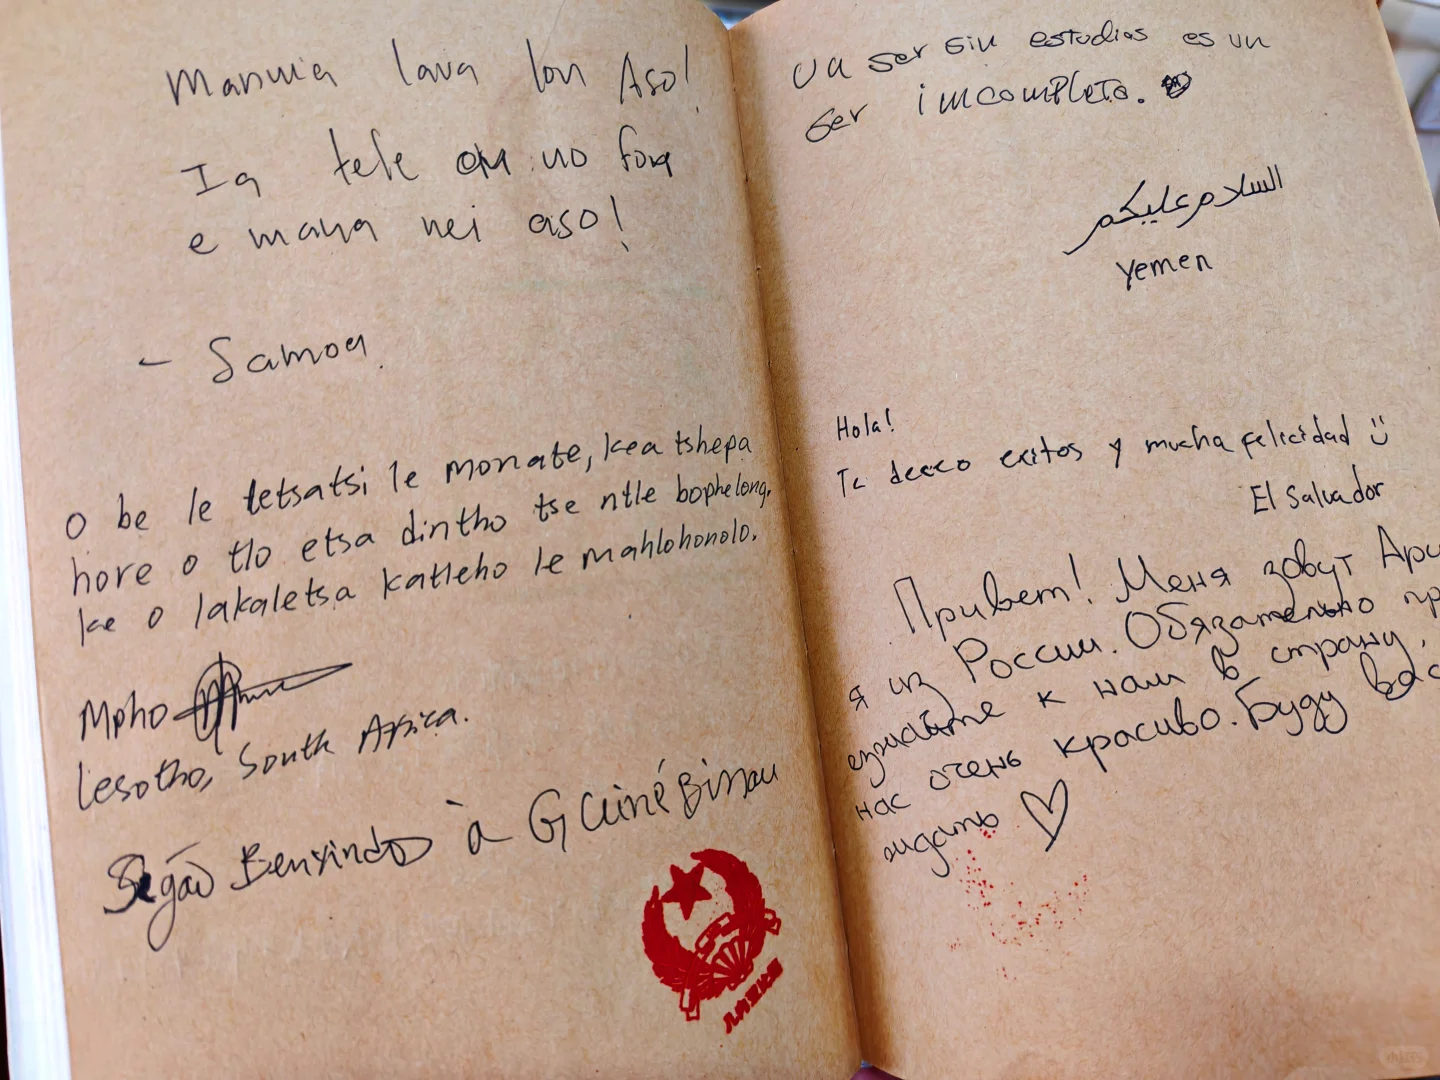 Manuia lava lou Aso!
Ia tele au uo fou
e maua nei aso!
- Samoa.
O be le letsatsi le monate, kea tshepa
hore o tlo etsa dintho tse ntle bophelong,
ke o lakaletsa katleho le mahlohonolo.
Mpho
Lesotho, South Africa.
Segão Benvindo à Guiné Bissau
Un ser sin estudios es un
ser imcompleto.
السلام عليكم
Yemen
Hola!
Te deseo exitos y mucha felicidad
El Salvador
Привет! Меня зовут Ари
я из России. Обязательно пр
езжайте к нам в страну,
нас очень красиво. Буду вас
ждать